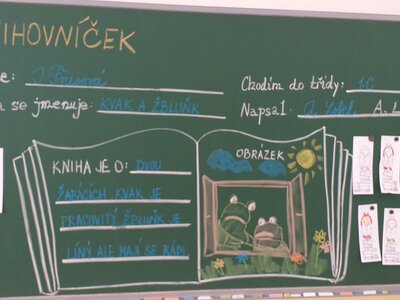 IHOVNÍČEK
e:
Chodím do třídy: 1.C
a se jmenuje: KVAK A ŽBLUŇK
Napsal: A. L
KNIHA JE O: DVOU
ŽABÁCÍCH KVAK JE
PRACOVITÝ ŽBLUŇK JE
LÍNÝ ALE MAJÍ SE RÁDI
OBRÁZEK